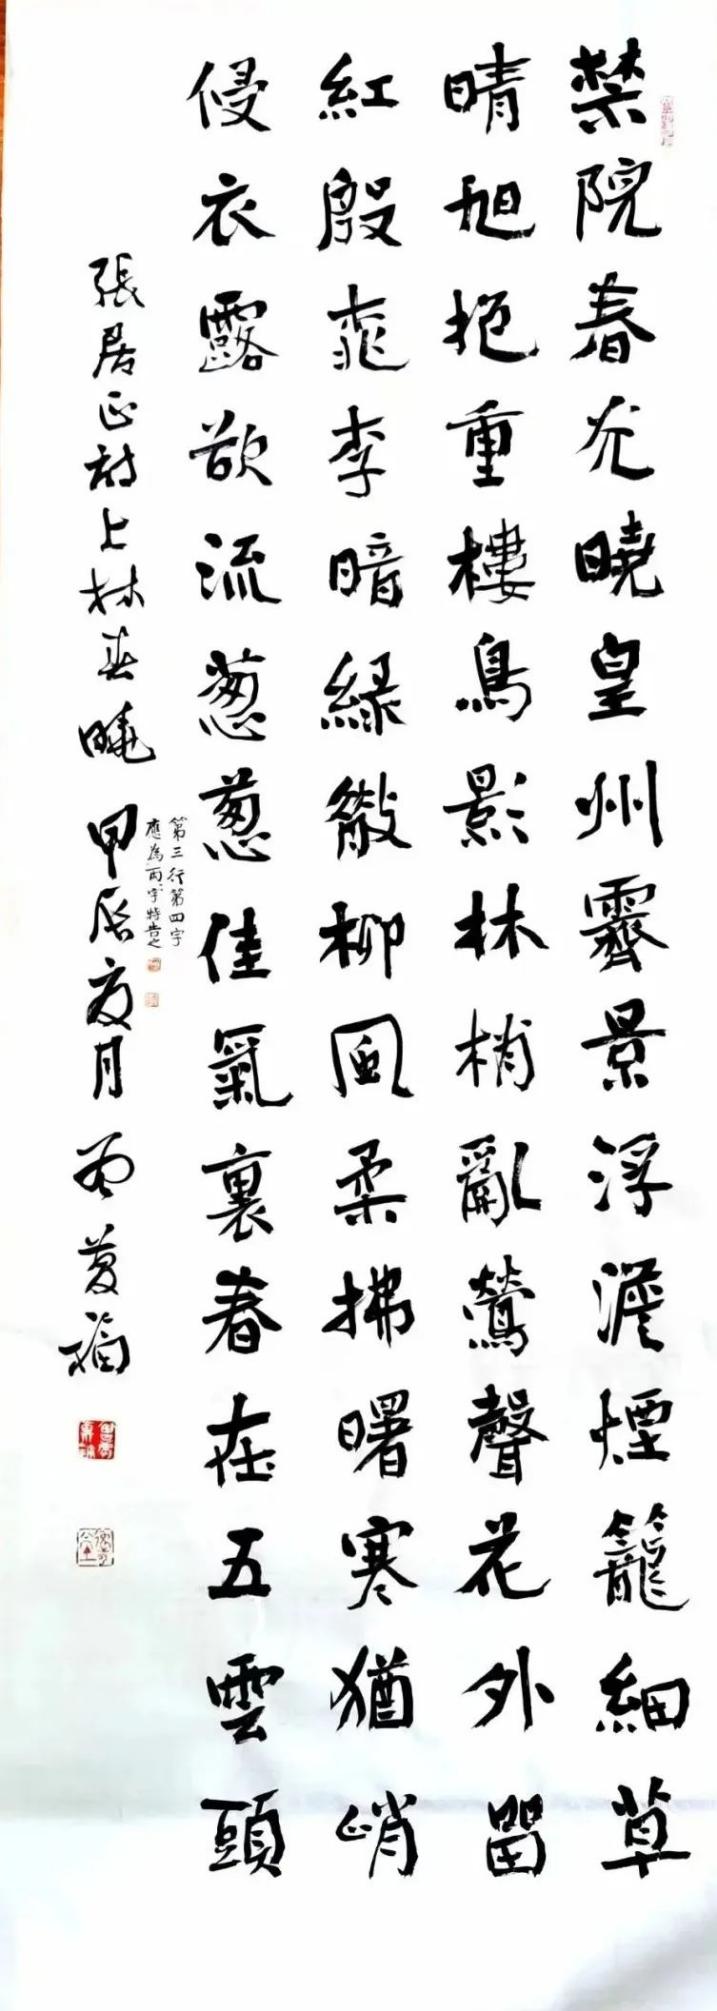 禁院春光曉皇州霽景浮淡煙籠細草
晴旭抱重樓鳥影林梢亂鶯聲花外留
紅殷桃李暗綠徹柳風柔拂曙寒猶峭
侵衣露欲流葱葱佳氣裏春在五雲頭
第三行第四字
應為雨字特告之
張居正詩上林春曉 甲辰夏月